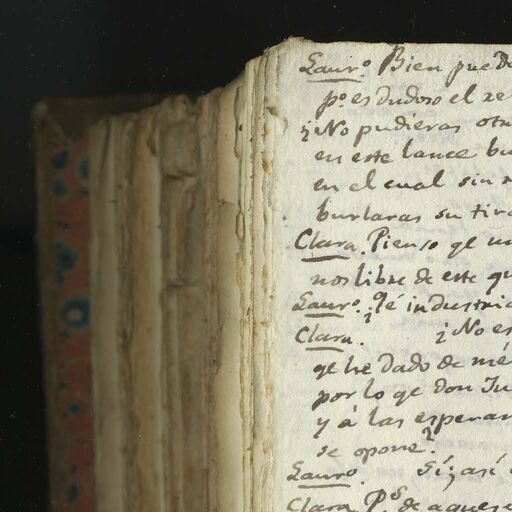 Lauro. Bien puede
po. es dudoso el re
¿No pudieras otr
en este lance bu
en el cual sin
burlaras su tira
Clara. Pienso qe. un
nos libre de este qu
Lauro. ¿Qé industria
Clara. ¿No es
qe he dado de mé
por lo qe don Ju
y á las esperan
se opone?
Lauro. Sí; así
Clara. Ps. de aques